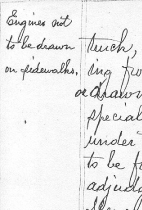 Engines not
to be drawn
on sidewalks.
truck,
ing fro
or drawn
special
under
to be f
adjud